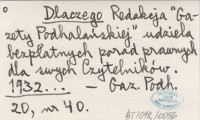 Dlaczego Redakcja "Ga-
zety Podhalańskiej" udziela
bezpłatnych porad prawnych
dla swych Czytelników.
1932... — Gaz. Podh.
20, nr 40.